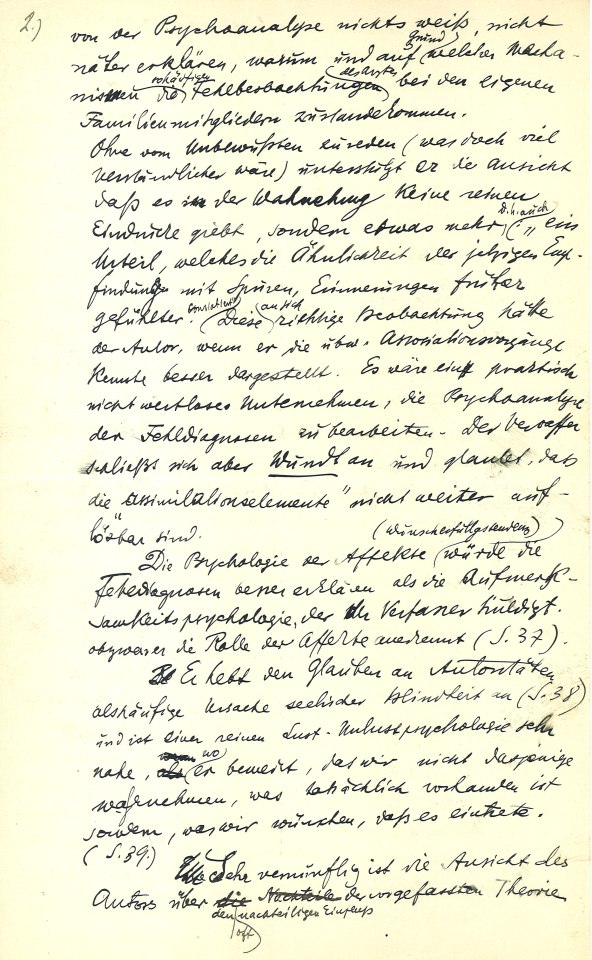 2.) von der Psychoanalyse nichts weiß, nicht
näher erklären, warum und auf Grund welcher Mecha-
nismen die so häufigen Fehlbeobachtungen des Arztes bei den eigenen
Familienmitgliedern zustandekommen.
Ohne vom Unbewußten zu reden (was doch viel
verständlicher wäre) unterstützt er die Ansicht
daß es in der Wahrnehmung keine reinen
Eindrücke giebt, sondern etwas mehr, (d.h. auch „ein
Urteil, welches die Ähnlichkeit der jetzigen Emp-
findung mit Spuren, Erinnerungen früher
gefühlter" constatiert. Diese an sich richtige Beobachtung hätte
der Autor, wenn er die ubw. Associationsvorgänge
kennte besser dargestellt. Es wäre ein praktisch
nicht wertloses Unternehmen, die Psychoanalyse
der Fehldiagnosen zu bearbeiten. Der Verfasser
schließt sich aber Wundt an und glaubt, dass
die „assimilationselemente" nicht weiter auf-
lösbar sind.
Die Psychologie der Affekte (Wunscherfüllgstendenz) würde die
Fehldiagnosen besser erklären als die Aufmerk-
samkeitspsychologie, der der Verfasser huldigt.
obzwar er die Rolle der Affekte anerkennt (S. 37).
Er hebt den Glauben an Autoritäten
als häufige Ursache seelischer Blindheit an (S. 38)
und ist einer reinen Lust-Unlustpsychologie sehr
nahe, wo er bemerkt, das wir nicht dasjenige
wahrnehmen, was tatsächlich vorhanden ist
sondern, was wir wünschen, daß es eintrete.
(S. 39.)
Sehr vernünftig ist die Ansicht des
Autors über den oft nachteiligen Einfluß der vorgefassten Theorie